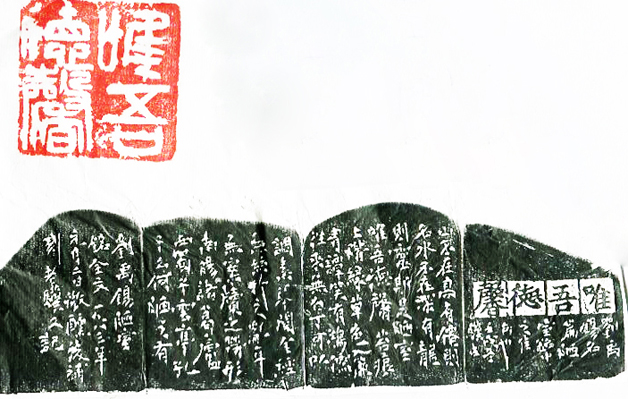 惟吾
德馨
惟吾德馨
山不在高有僊則
名水不在深有龍
則靈斯是陋室
惟吾德馨苔痕
上階綠草色入簾
青談笑有鴻儒
往來無白丁可以
調素琴閱金經
無絲竹之亂耳
無案牘之勞形
南陽諸葛廬
西蜀子雲亭孔
子云何陋之有
劉禹錫陋室
銘全文一九八三年
元月二日
刻 又記